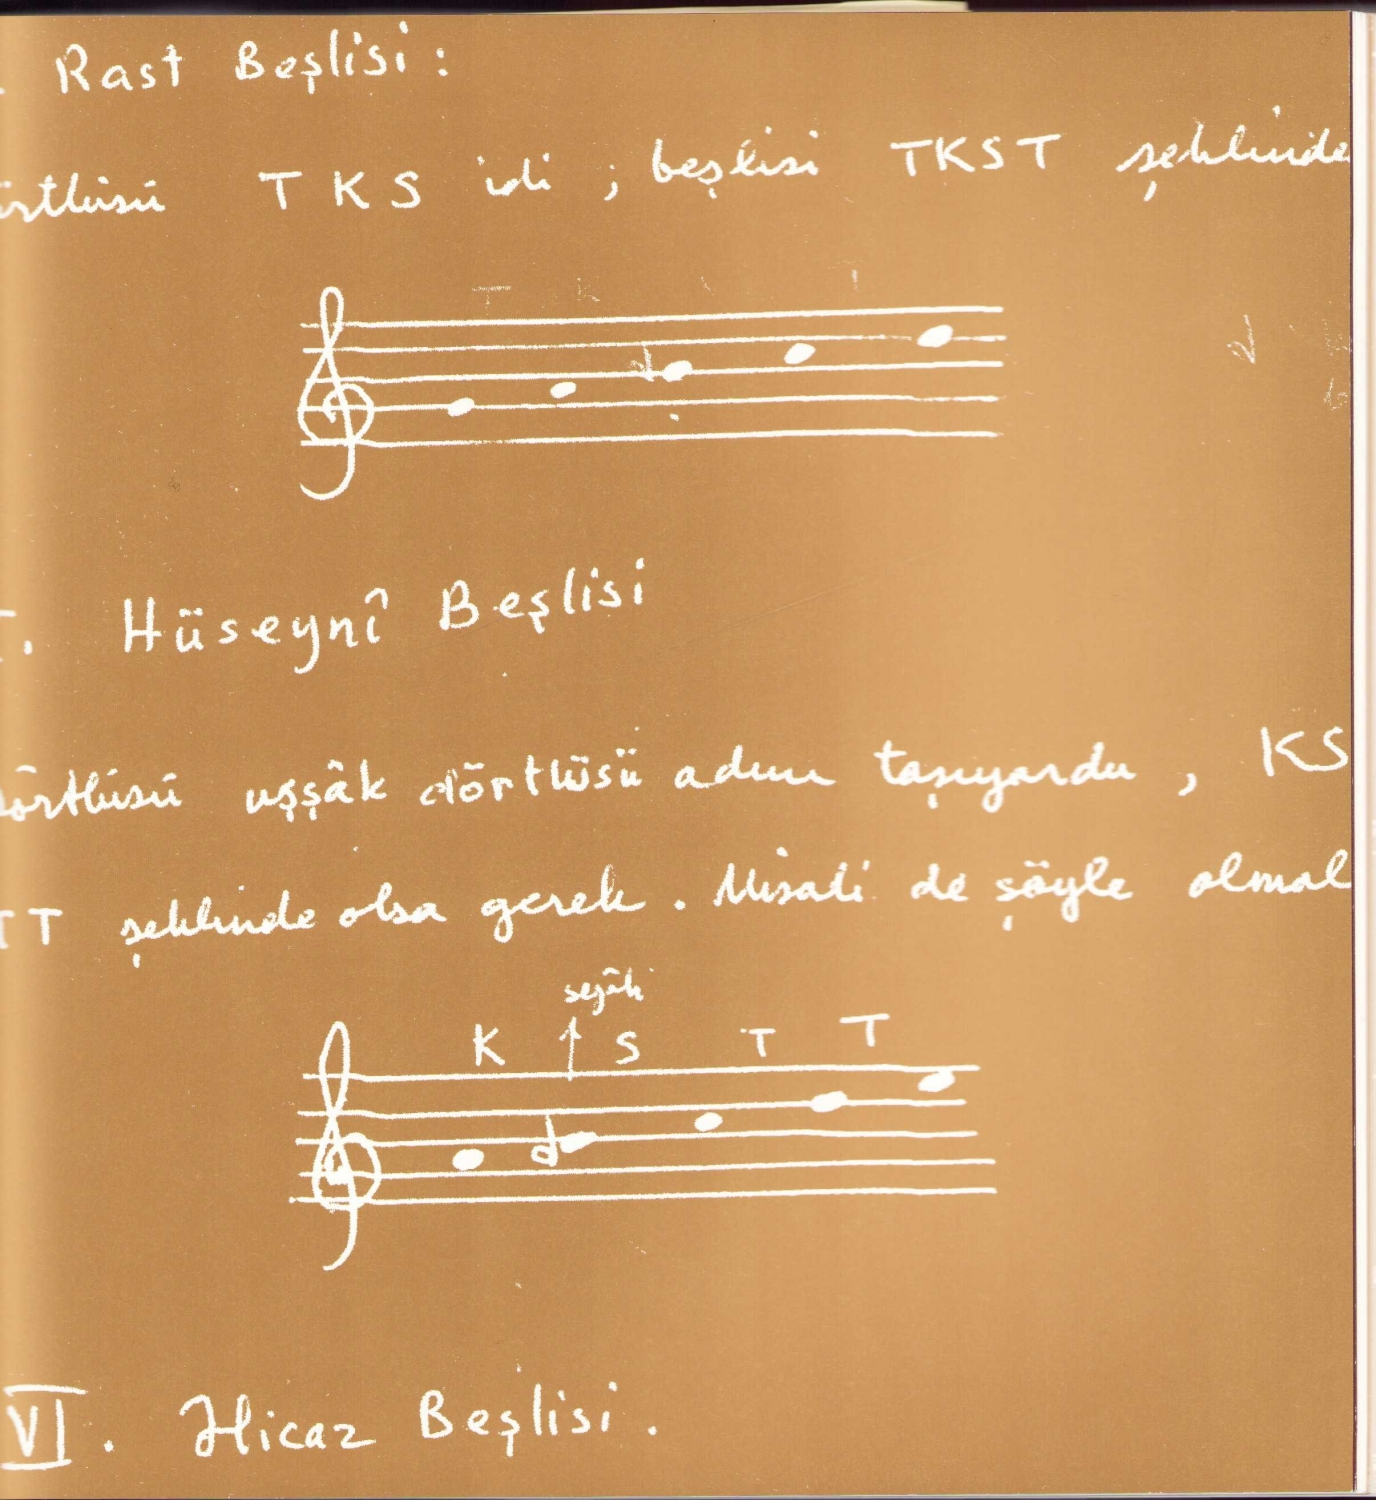 . Rast Beşlisi :
örtlüsü T K S idi ; beşlisi TKST şeklinde
T K
. Hüseynî Beşlisi
dörtlüsü uşşâk dörtlüsü adını taşıyordu , KS
TT şeklinde olsa gerek . Misali de şöyle olmal
segâh
K S T T
VI . Hicaz Beşlisi .